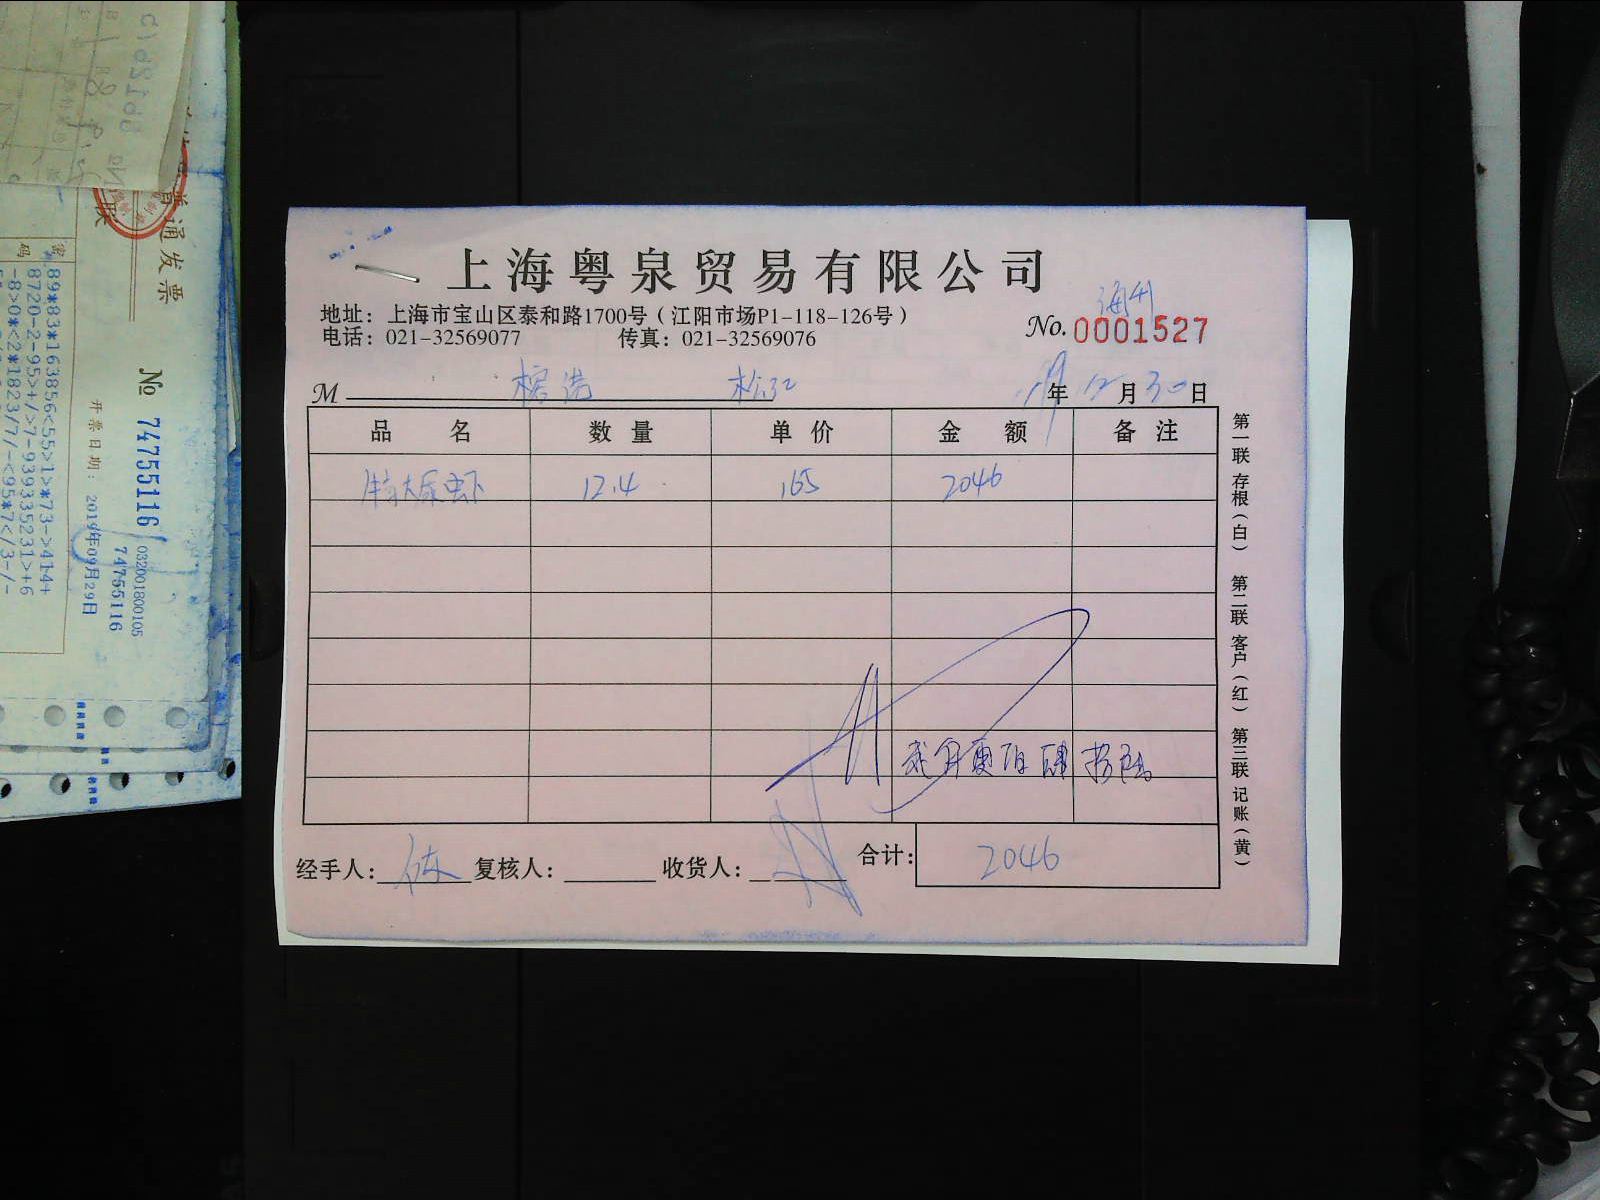 上海粤泉贸易有限公司
地址：上海市宝山区泰和路1700号（江阳市场P1-118-126号）
电话：021-32569077 传真：021-32569076
No. 0001527
M 松江 19年12月30日
品名 数量 单价 金额 备注
特大尿虾 12.4 165 2046
贰仟零佰肆拾陆
经手人： 复核人： 收货人： 合计： 2046
第一联 存根（白） 第二联 客户（红） 第三联 记账（黄）
普通发票
联
密
码
89*83*163856<55>1>*73->414+
8720-2-95>+/>7-939335231>+6
-8>0*<2*1823/7/-<95*7</3-/-
№ 74755116
032001800105
74755116
开票日期： 2019年09月29日